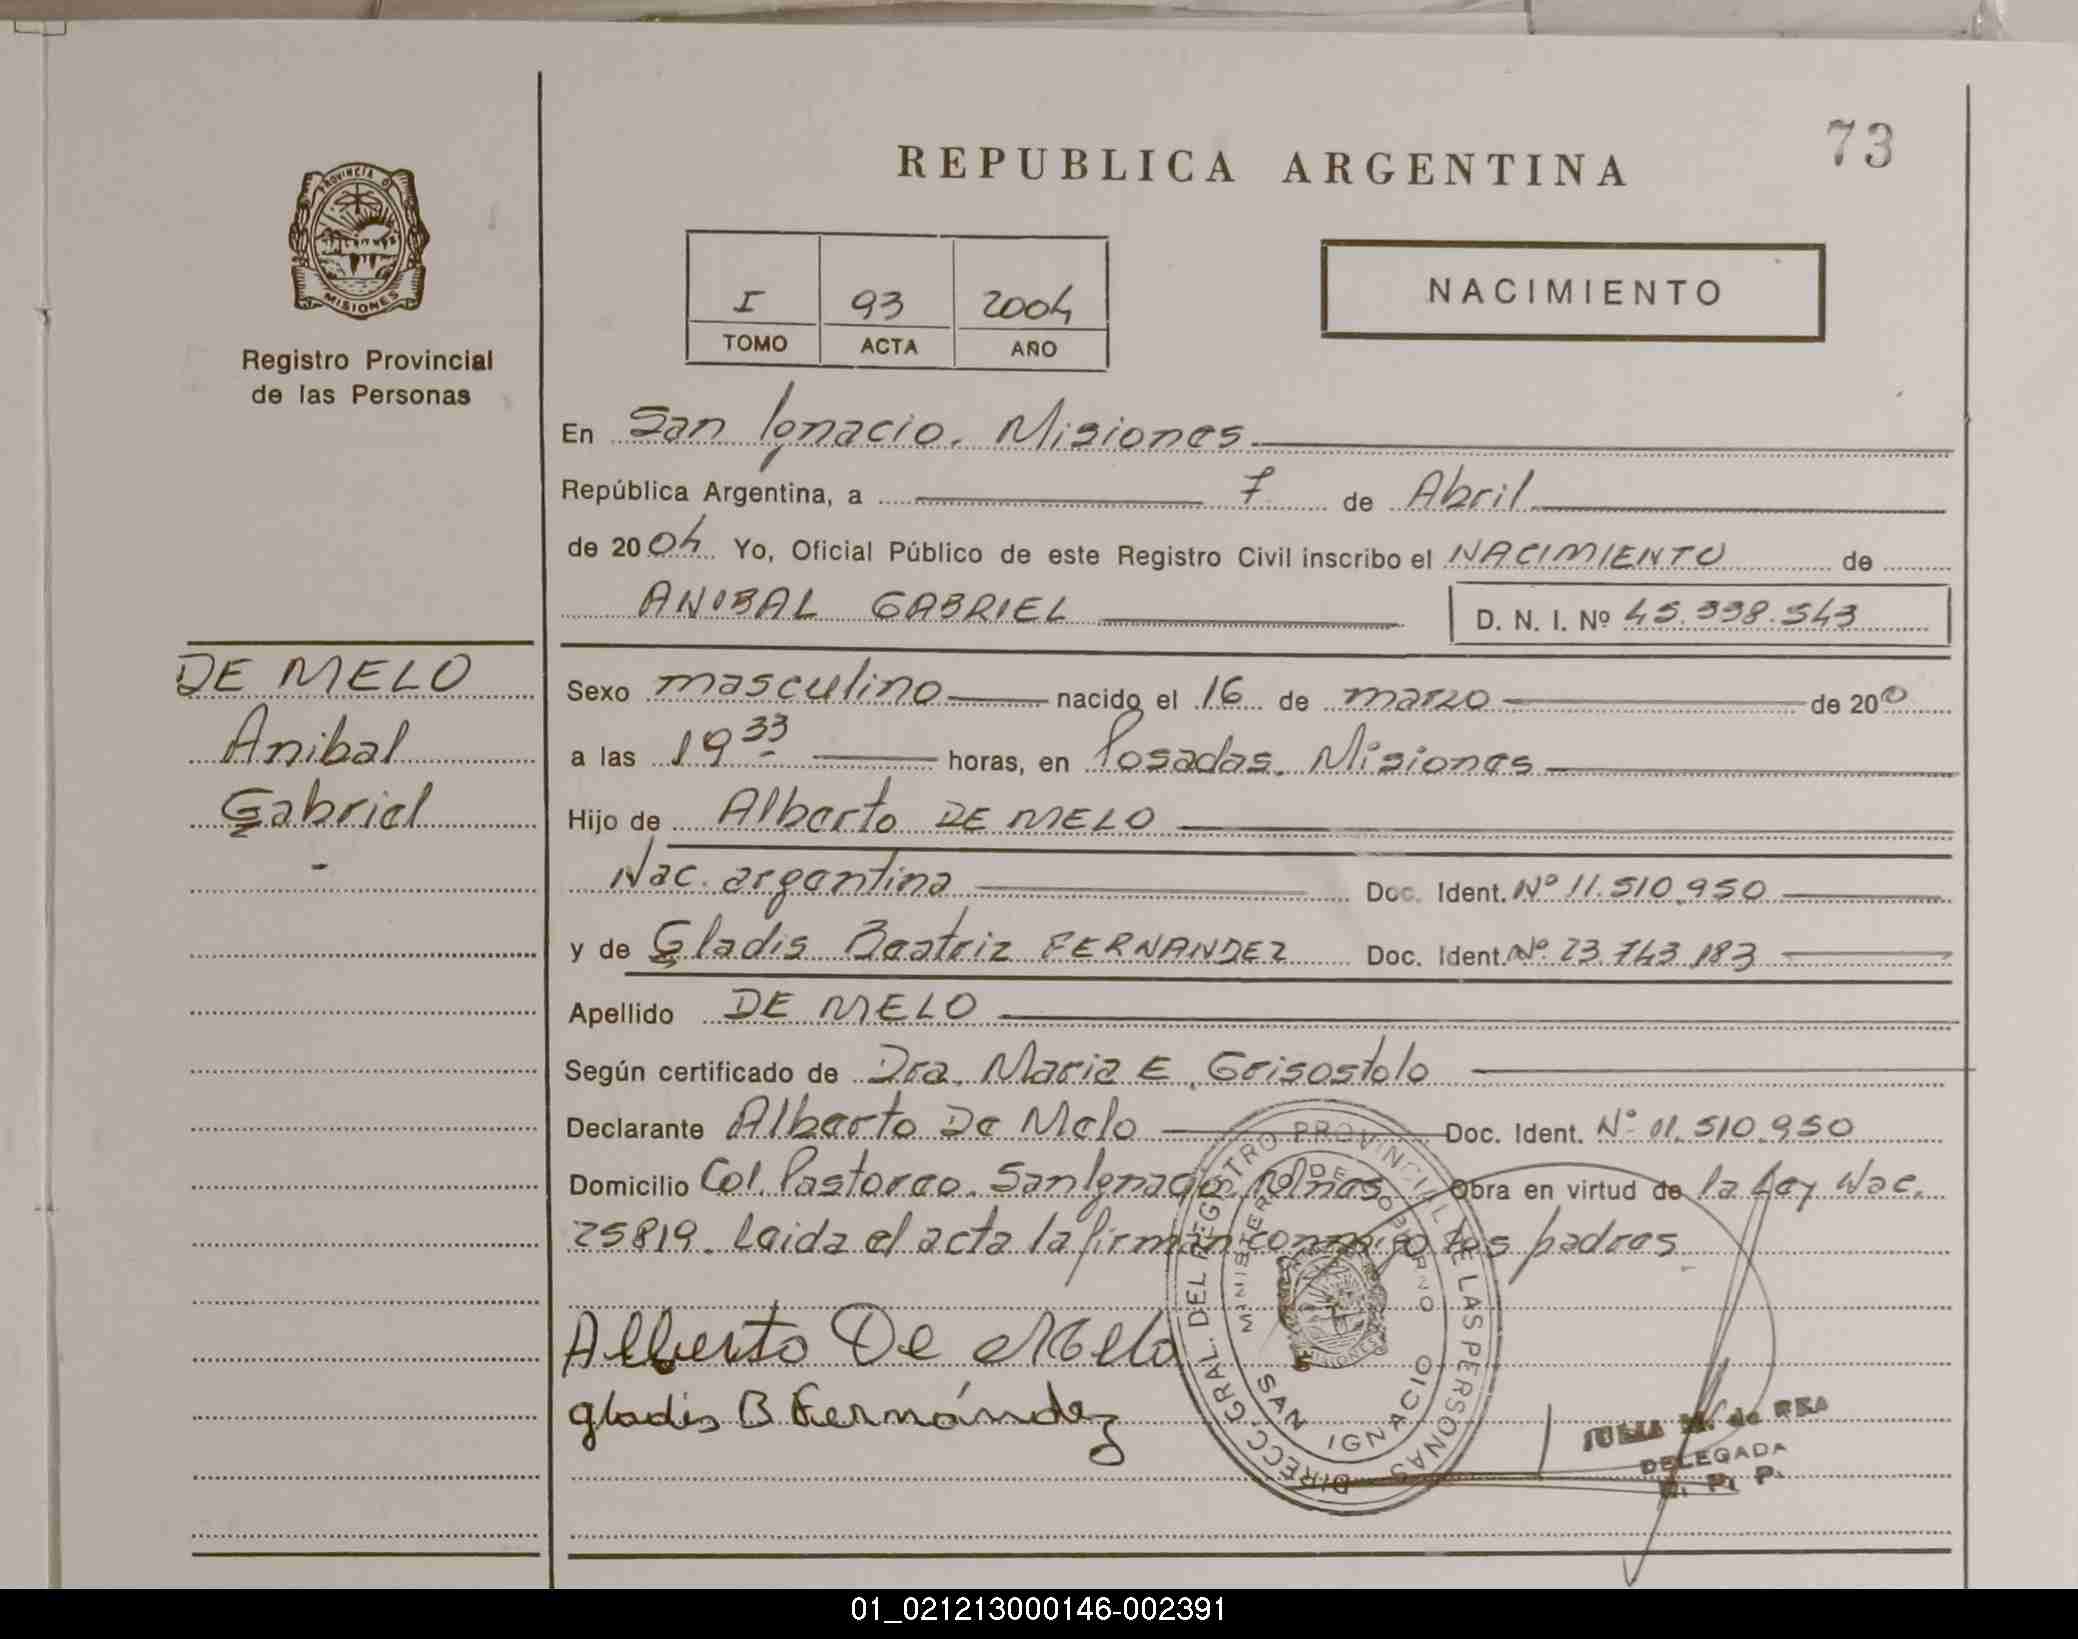 73
REPUBLICA ARGENTINA
PROVINCIA D
MISIONES
Registro Provincial
de las Personas
I 93 2004
TOMO ACTA AÑO
NACIMIENTO
En San Ignacio. Misiones
República Argentina, a 7 de Abril
de 2004 Yo, Oficial Público de este Registro Civil inscribo el NACIMIENTO de
ANIBAL GABRIEL D. N. I. Nº 45.338.543
DE MELO
Anibal
Gabriel
-
Sexo masculino nacido el 16 de marzo de 200
a las 19 33 horas, en Posadas. Misiones
Hijo de Alberto DE MELO
Nac. argentina Doc. Ident. Nº 11.510.950
y de Gladis Beatriz FERNANDEZ Doc. Ident. Nº 23.743.183
Apellido DE MELO
Según certificado de Dra. Maria E. Grisostolo
Declarante Alberto De Melo Doc. Ident. Nº 11.510.950
Domicilio Col. Pastoreo. San Ignacio. Mnes Obra en virtud de la Ley Nac.
25819. Leida el acta la firman conmigo los padres
Alberto De Melo
gladis B Fernández
DIRECC. GRAL. DEL REGISTRO PROVINCIAL DE LAS PERSONAS
MINISTERIO DE GOBIERNO
SAN IGNACIO
MISIONES
M. de REA
DELEGADA
R. P. P.
01_021213000146-002391